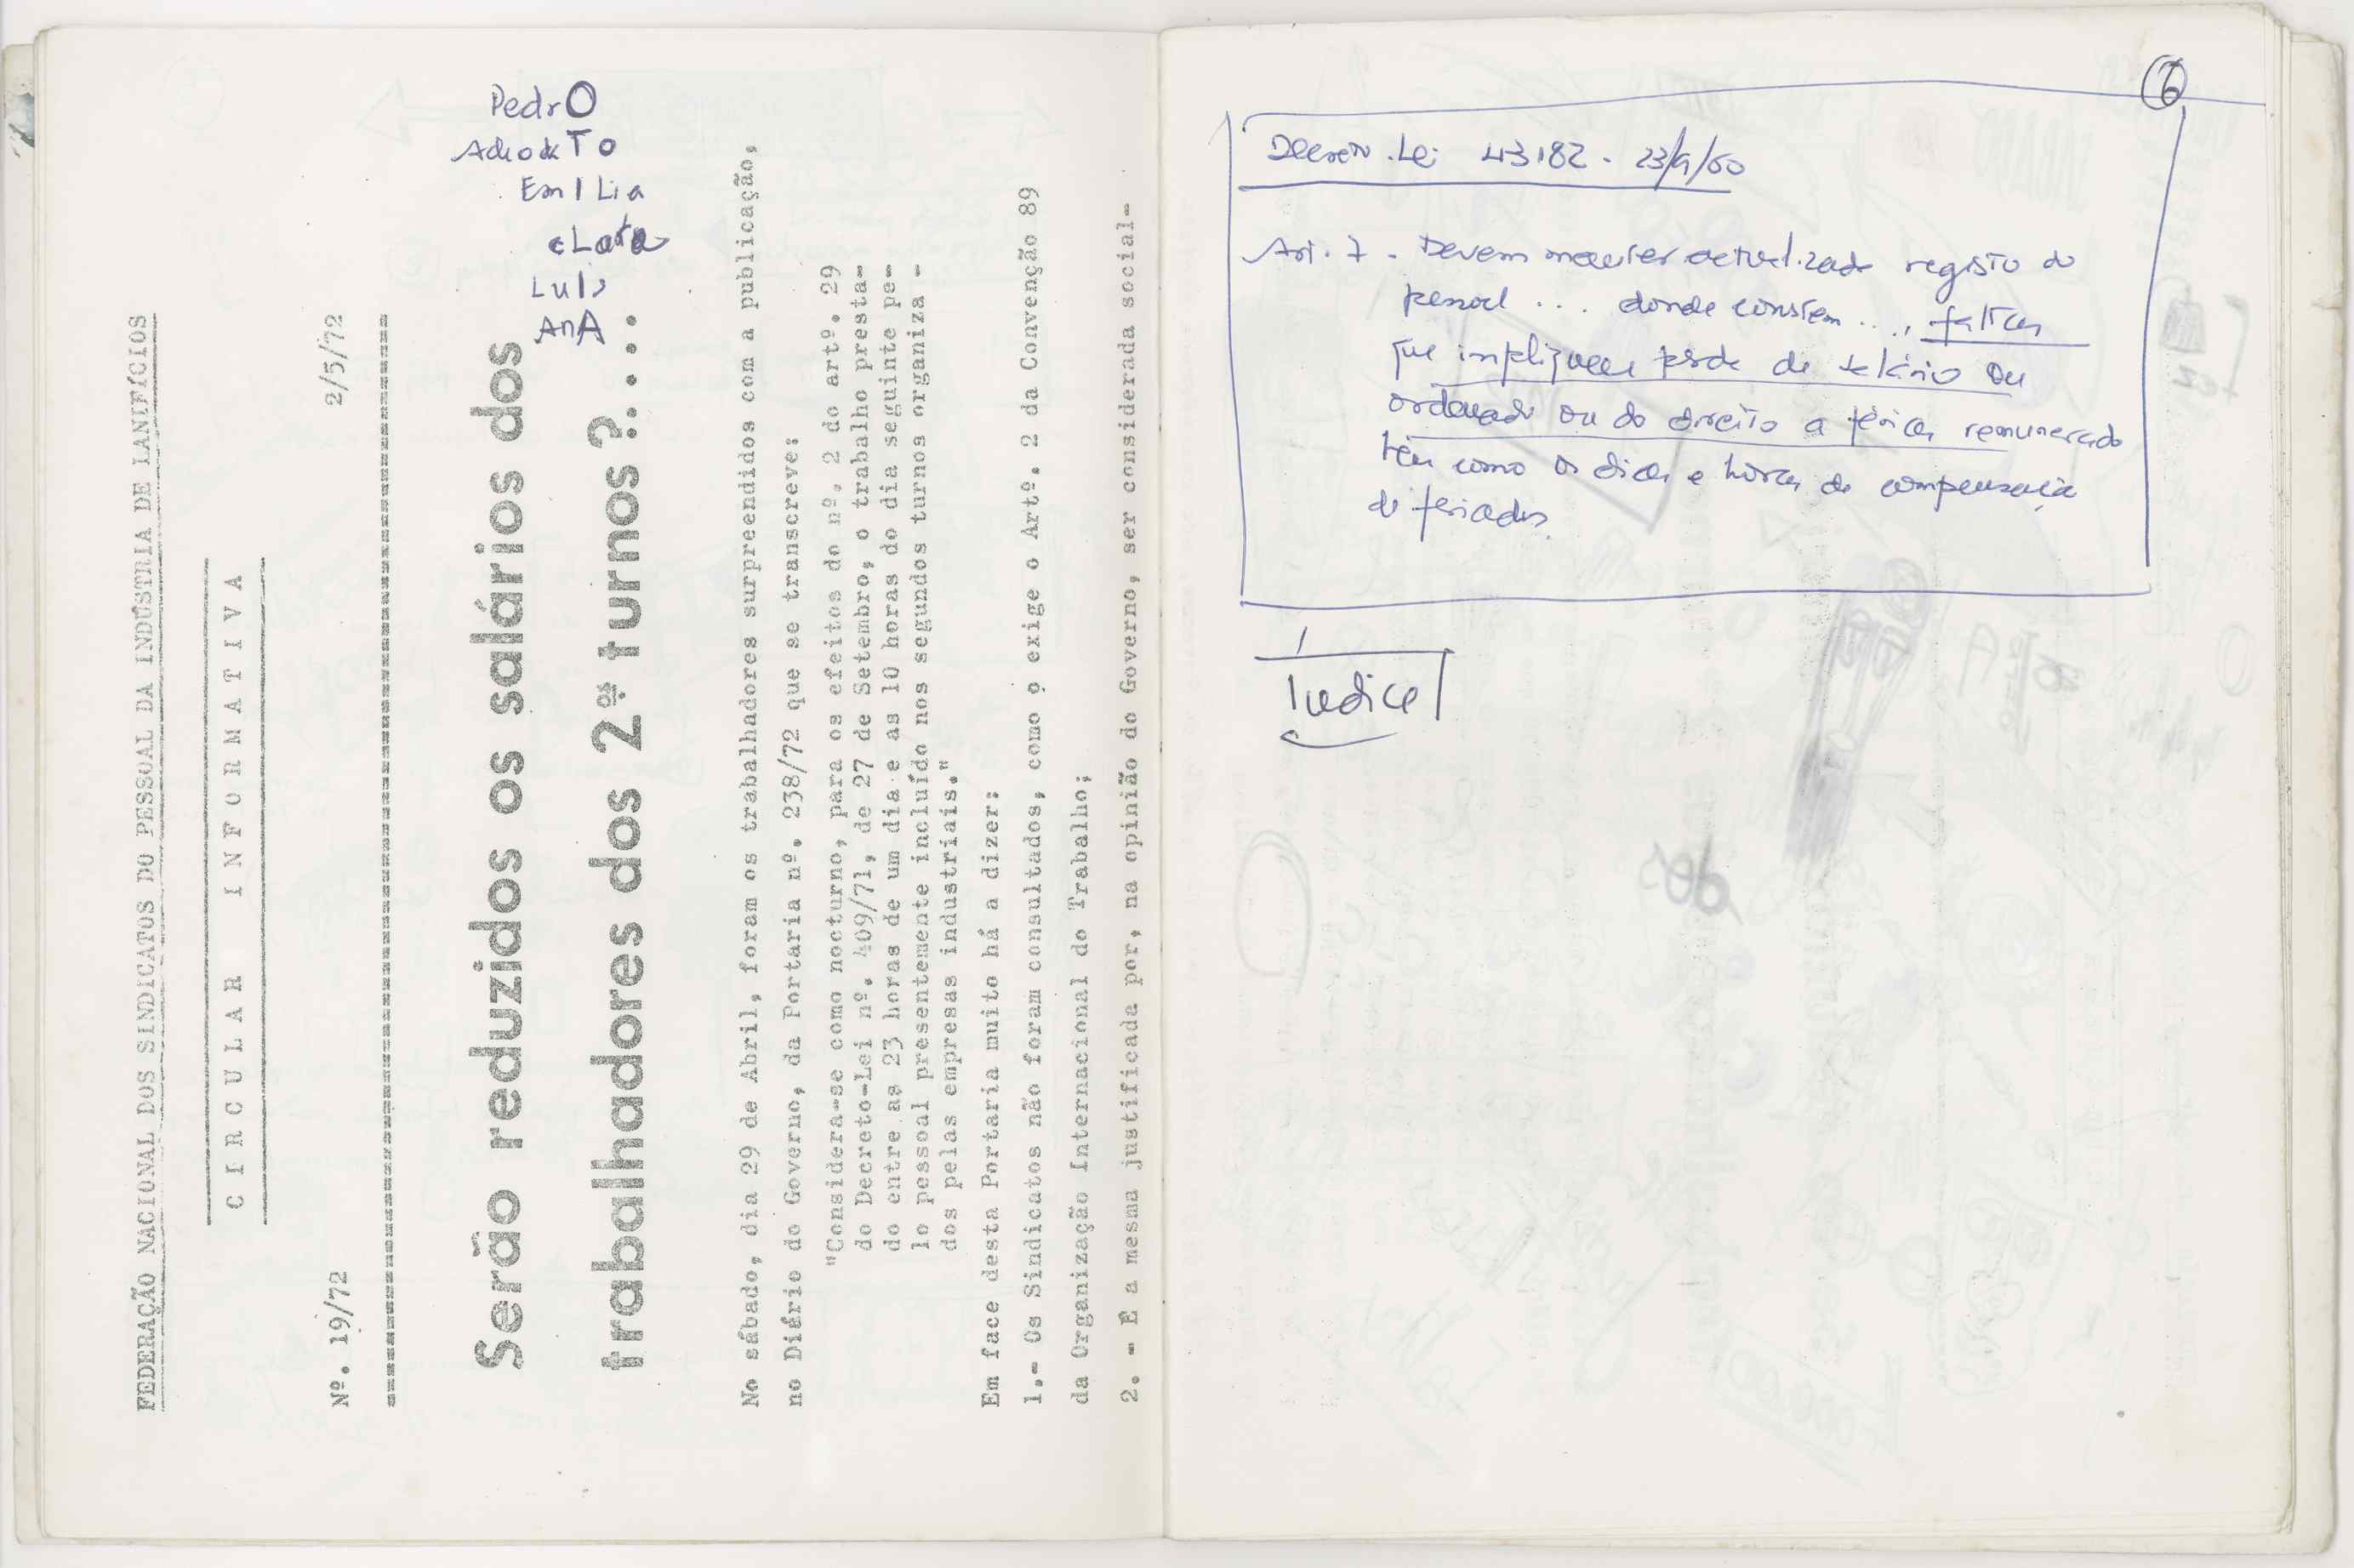 FEDERAÇÃO NACIONAL DOS SINDICATOS DO PESSOAL DA INDÚSTRIA DE LANIFÍCIOS
CIRCULAR INFORMATIVA
Nº. 19/72 2/5/72
Serão reduzidos os salários dos
trabalhadores dos 2ºˢ turnos?.....
No sábado, dia 29 de Abril, foram os trabalhadores surpreendidos com a publicação,
no Diário do Governo, da Portaria nº. 238/72 que se transcreve:
"Considera-se como nocturno, para os efeitos do nº. 2 do artº. 29
do Decreto-Lei nº. 409/71, de 27 de Setembro, o trabalho presta-
do entre as 23 horas de um dia e as 10 horas do dia seguinte pe-
lo pessoal presentemente incluído nos segundos turnos organiza -
dos pelas empresas industriais."
Em face desta Portaria muito há a dizer:
1.- Os Sindicatos não foram consultados, como o exige o Artº. 2 da Convenção 89
da Organização Internacional do Trabalho;
2. - E a mesma justificada por, na opinião do Governo, ser considerada social-
PedrO
AdeodaTo
EmILia
cLara
LuIs
AnA
6
Decreto.Lei 43182 - 23/9/60
Art. 7 - Devem manter actualizado registo do
pessoal ... donde constem ..., faltas
que impliquem perda de salário ou
ordenado ou do direito a férias remuneradas
bem como os dias e horas de compensação
de feriados.
Indice